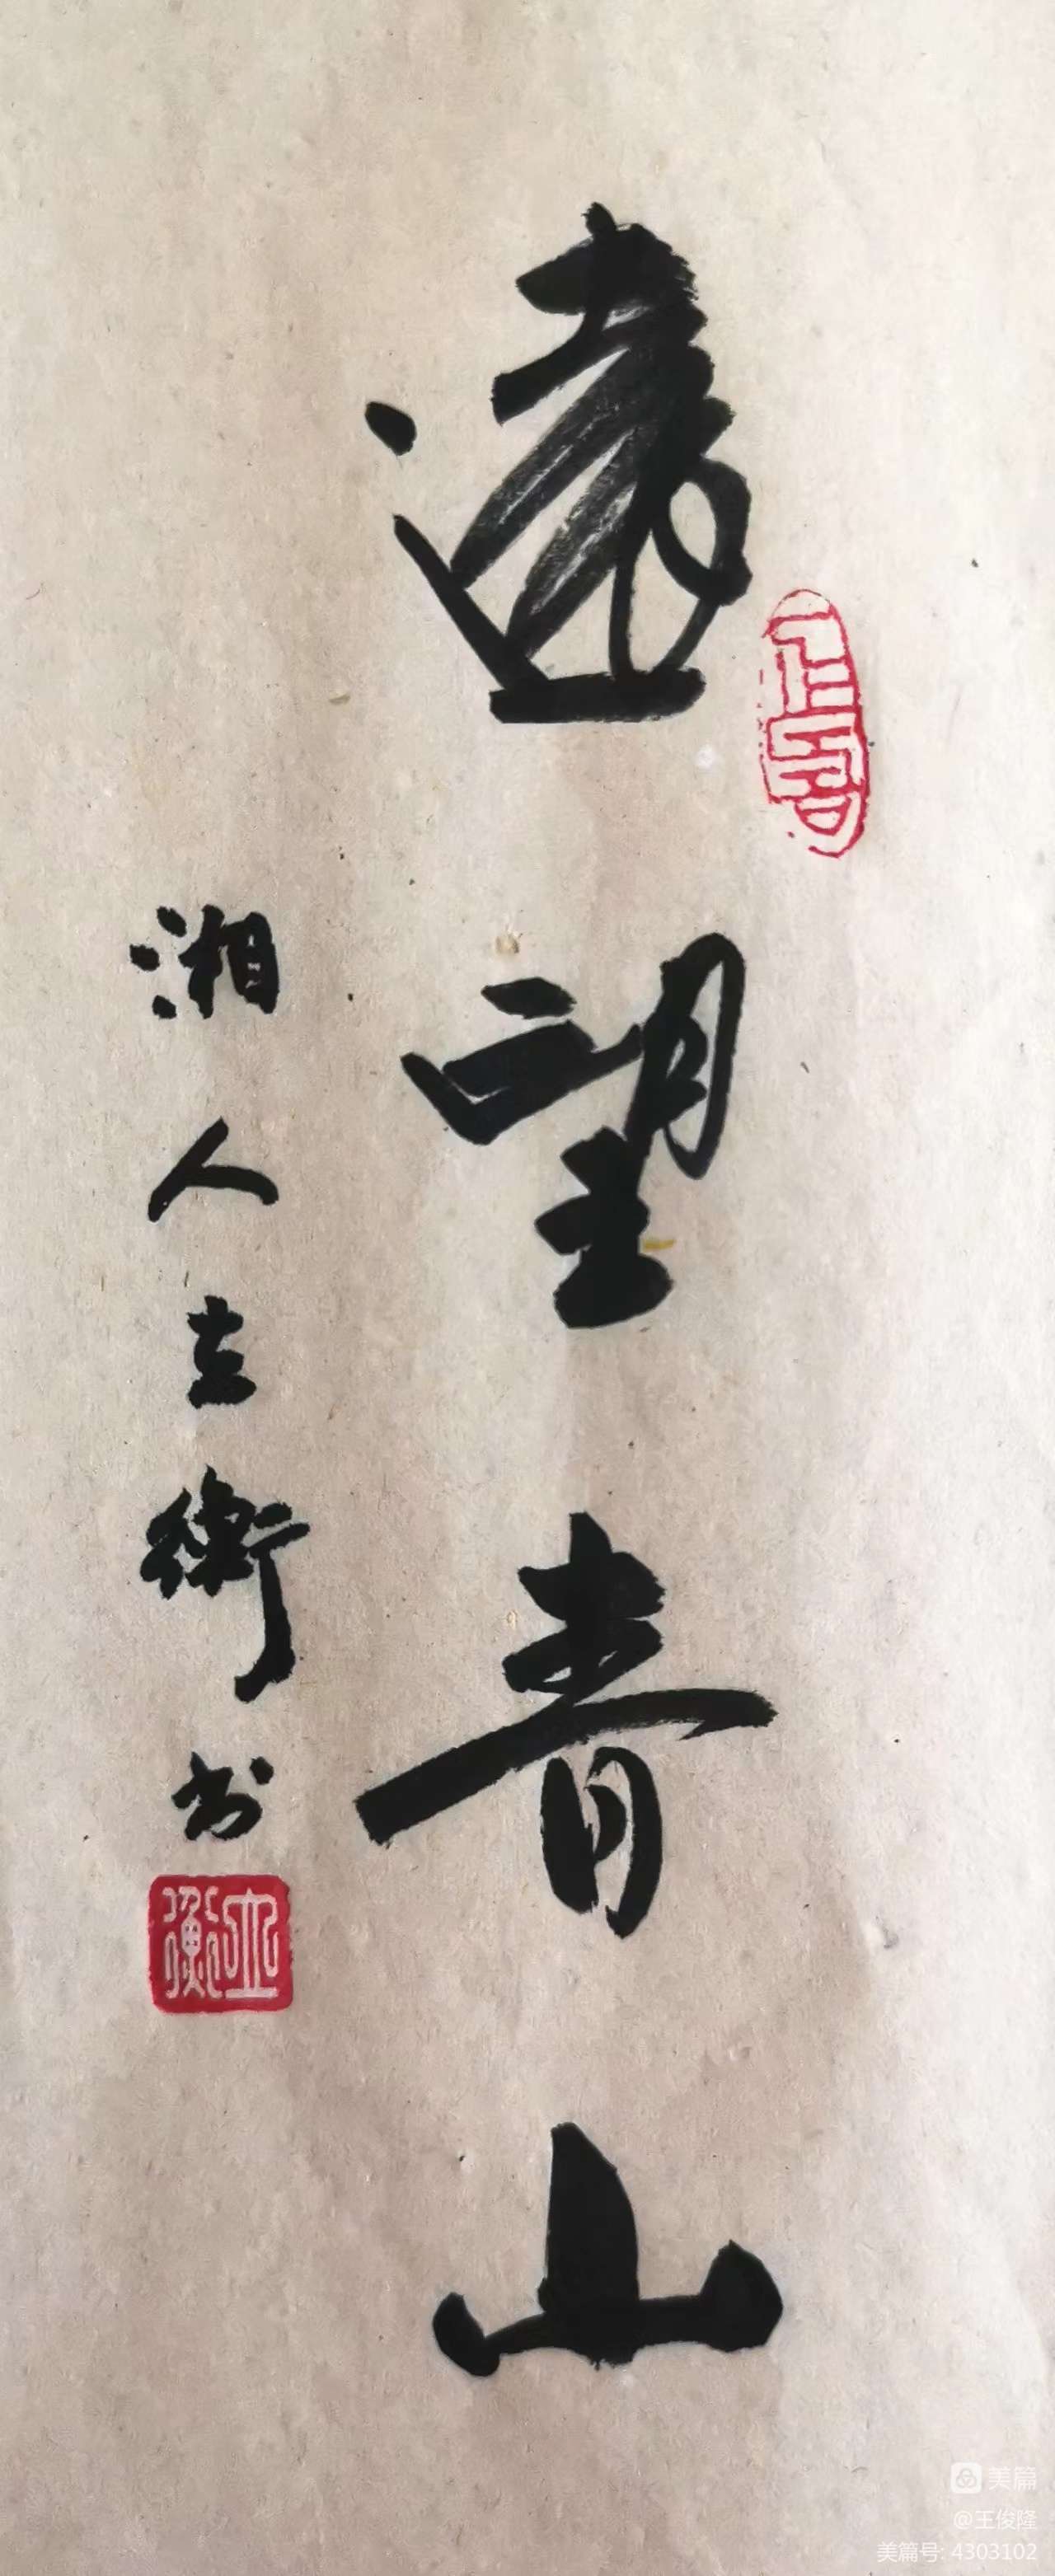 遠望青山
湘人立衡书
立衡
美篇
@王俊隆
美篇号: 4303102